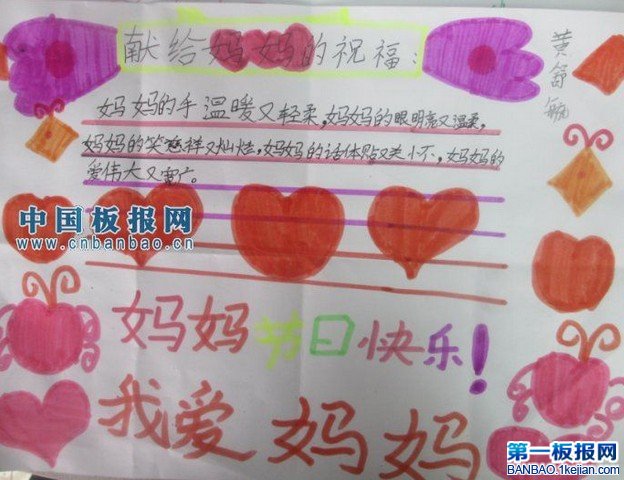 献给妈妈的祝福：
黄
妈妈的手温暖又轻柔，妈妈的眼明亮又温柔，
妈妈的笑慈祥又灿烂，妈妈的话体贴又关怀，妈妈的
爱伟大又宽广。
中国板报网
www.cnbanbao.cn
妈妈节日快乐！
我爱妈妈
第一板报网
BANBAO.1kejian.com